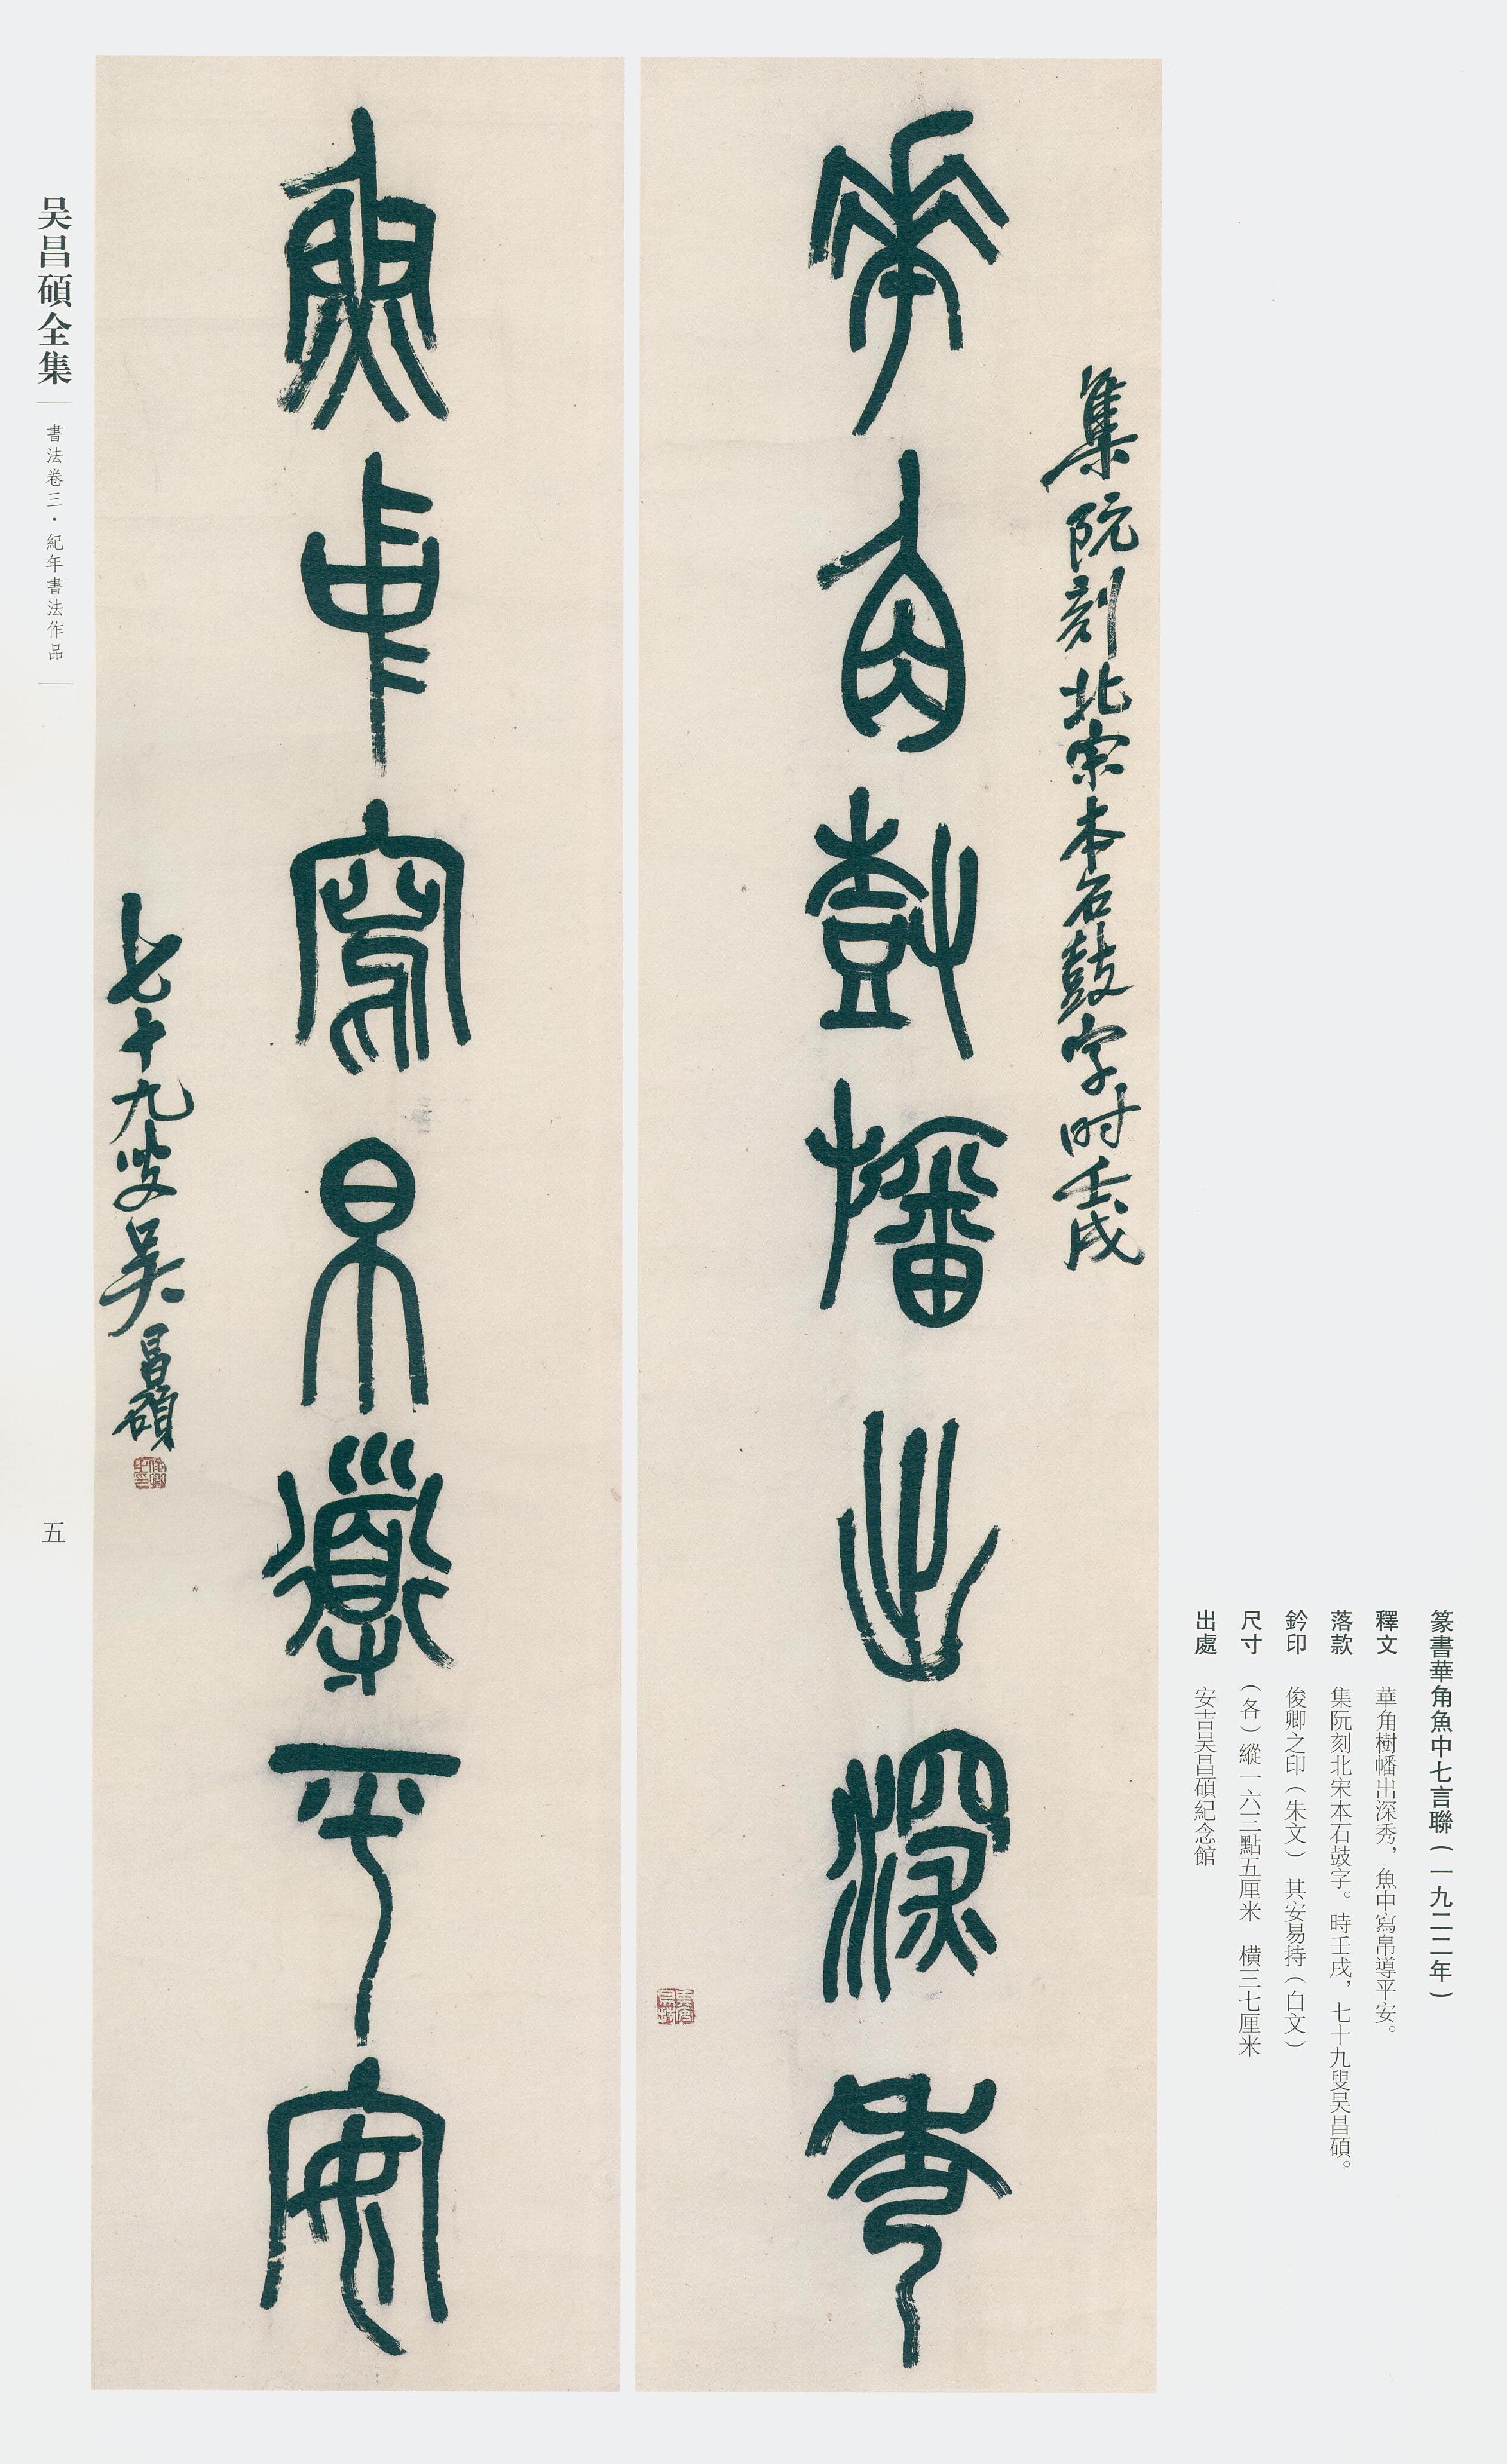 篆書華角魚中七言聯(一九二二年)
釋文 華角樹幡出深秀，魚中寫帛導平安。
落款 集阮刻北宋本石鼓字。時壬戌，七十九叟吴昌碩。
鈐印 俊卿之印(朱文) 其安易持(白文)
尺寸 (各)縱一六三點五厘米 橫三七厘米
出處 安吉吴昌碩紀念館
集阮刻北宋本石鼓字时壬戌
華角樹幡出深秀
其安易持
魚中寫帛導平安
七十九叟吴昌碩
俊卿之印
吴昌碩全集
書法卷三·紀年書法作品
五